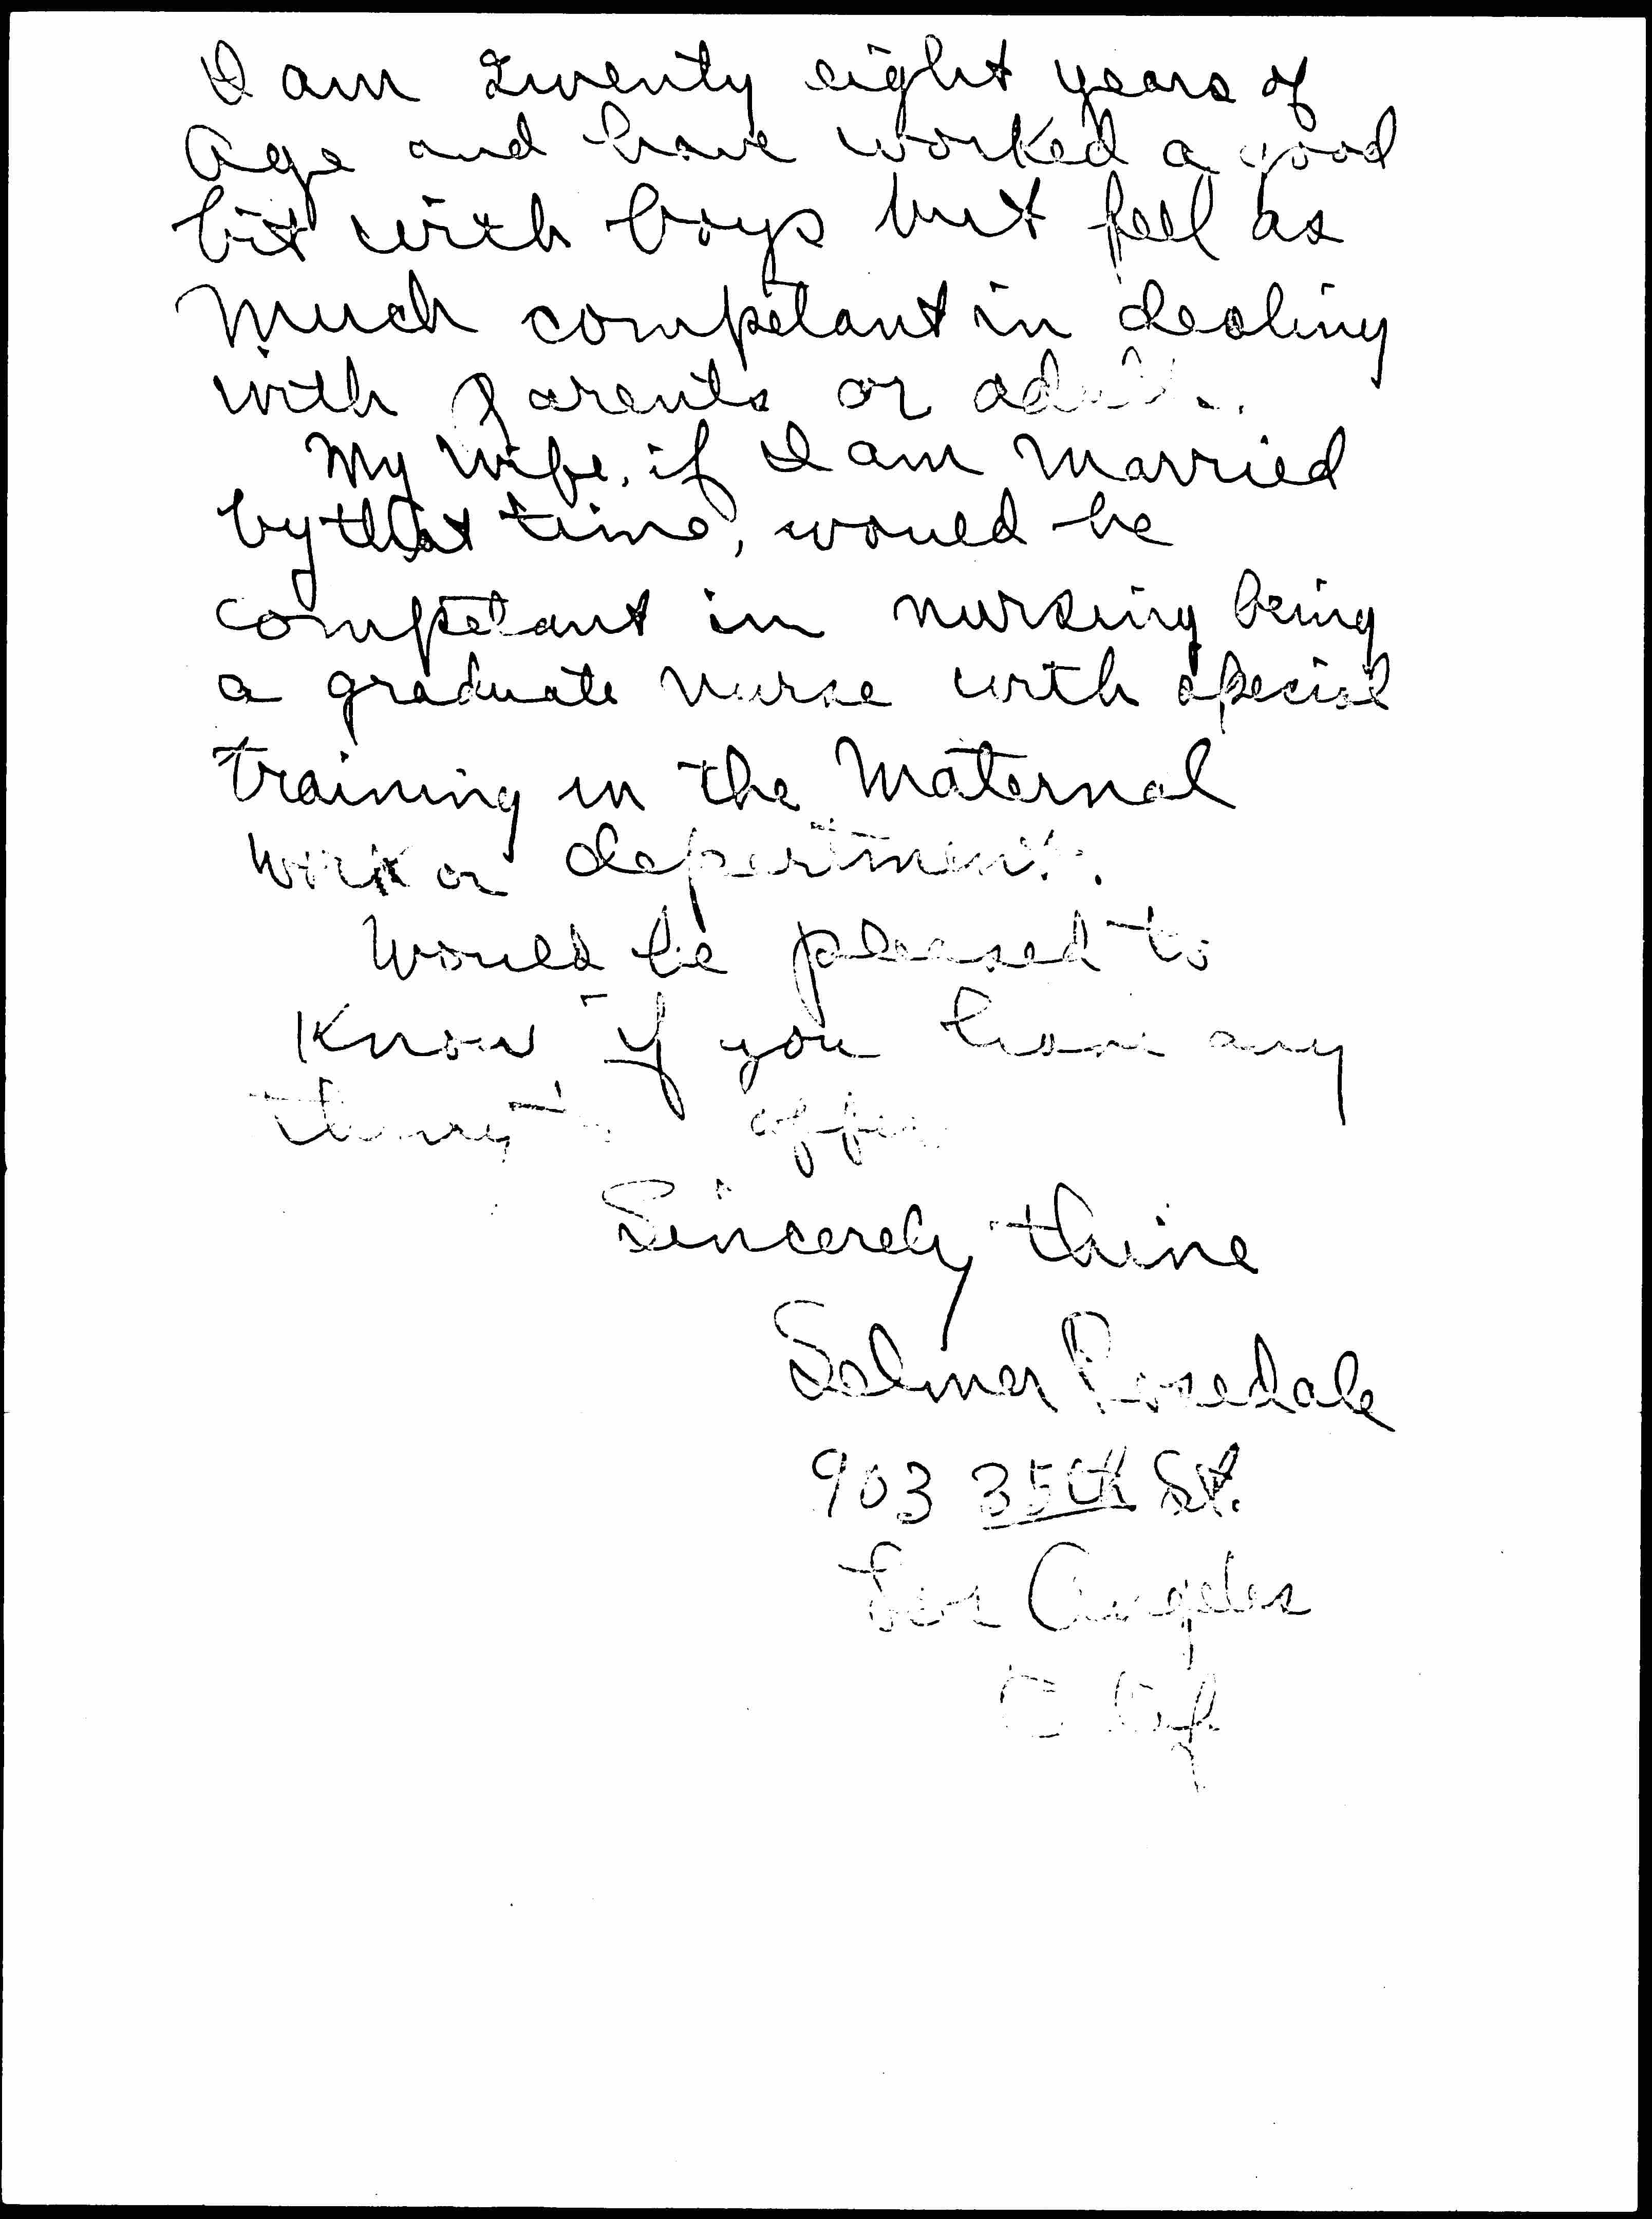 I am twenty eight years of
Age and have worked a good
bit with boys but feel as
much competant in dealing
with parents or adults.
My wife, if I am married
by that time, would be
competant in nursing being
a graduate nurse with special
training in the Maternal
work or department.
Would be pleased to
Know if you have any
thing to offer
Sincerely thine
Selmer Rosedale
903 35th St.
Los Angeles
Calif